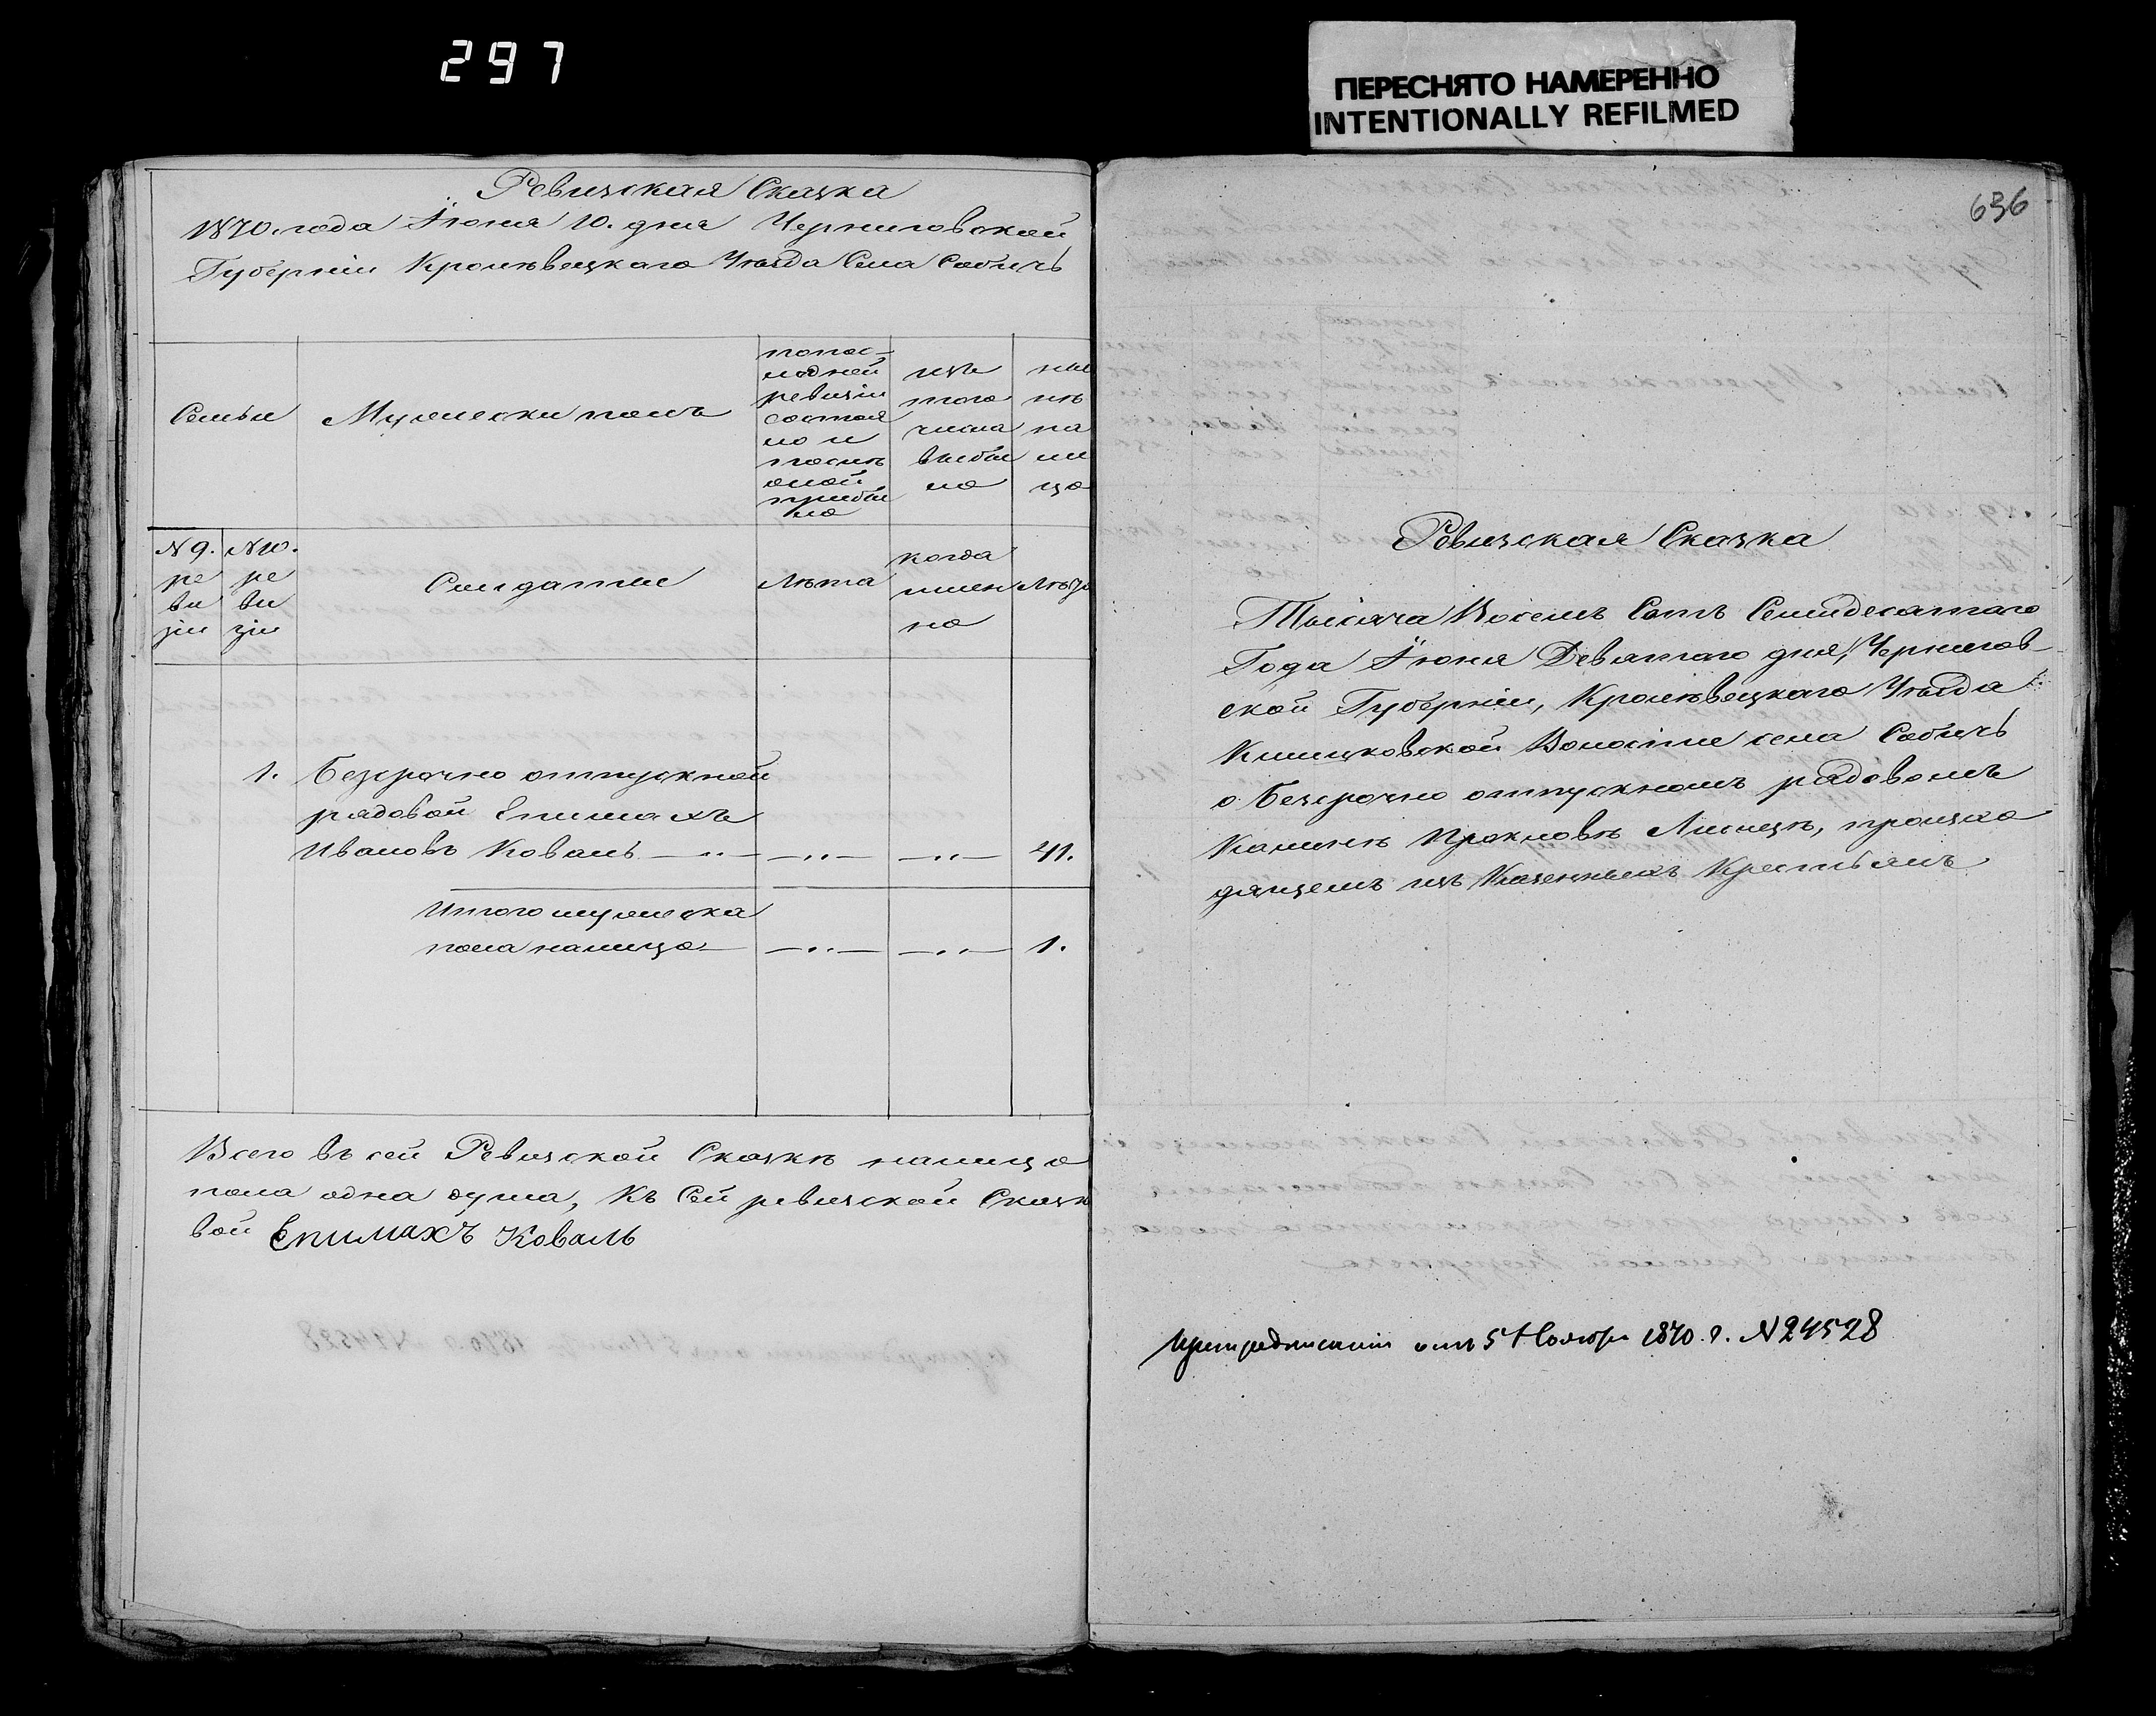 297
ПЕРЕСНЯТО НАМЕРЕННО
INTENTIONALLY REFILMED
Ревизская Сказка
1870. года Іюня 10. дня Черниговской
Губерніи Кролѣвецкаго Уѣзда Села Собичь
Семьи
Мужески полъ
попос-
лѣдней
ревизіи
состоя
ло и
послѣ
оной
прибы
ло
изъ
того
числа
выбы
ло
ны
нѣ
на
ли
цо
N 9.
ре
ви
зіи
N 10.
ре
ви
зіи
Солдатие
Лѣта
когда
имен
но
Лѣта
1. безсрочно отпускной
рядовой Епимахъ
Ивановъ Коваль 41.
Итого мужеска
пола налицо 1.
Всего въ сей Ревизской Сказкѣ налицо
пола одна душа, Къ Сей ревизской Сказк
вой Епимахъ Коваль
636
Ревизская Сказка
Тысяча Восемь Сотъ Семидесятаго
Года Іюня Девятаго дня, Чернигов-
ской Губерніи, Кролѣвецкаго Уѣзда
Волости села Собичь
о безсрочно отпускномъ рядовомъ
Лисицѣ, происхо
дящемъ изъ Казенныхъ Крестьянъ
При предписаніи отъ 5 Ноября 1870. г. N 24528